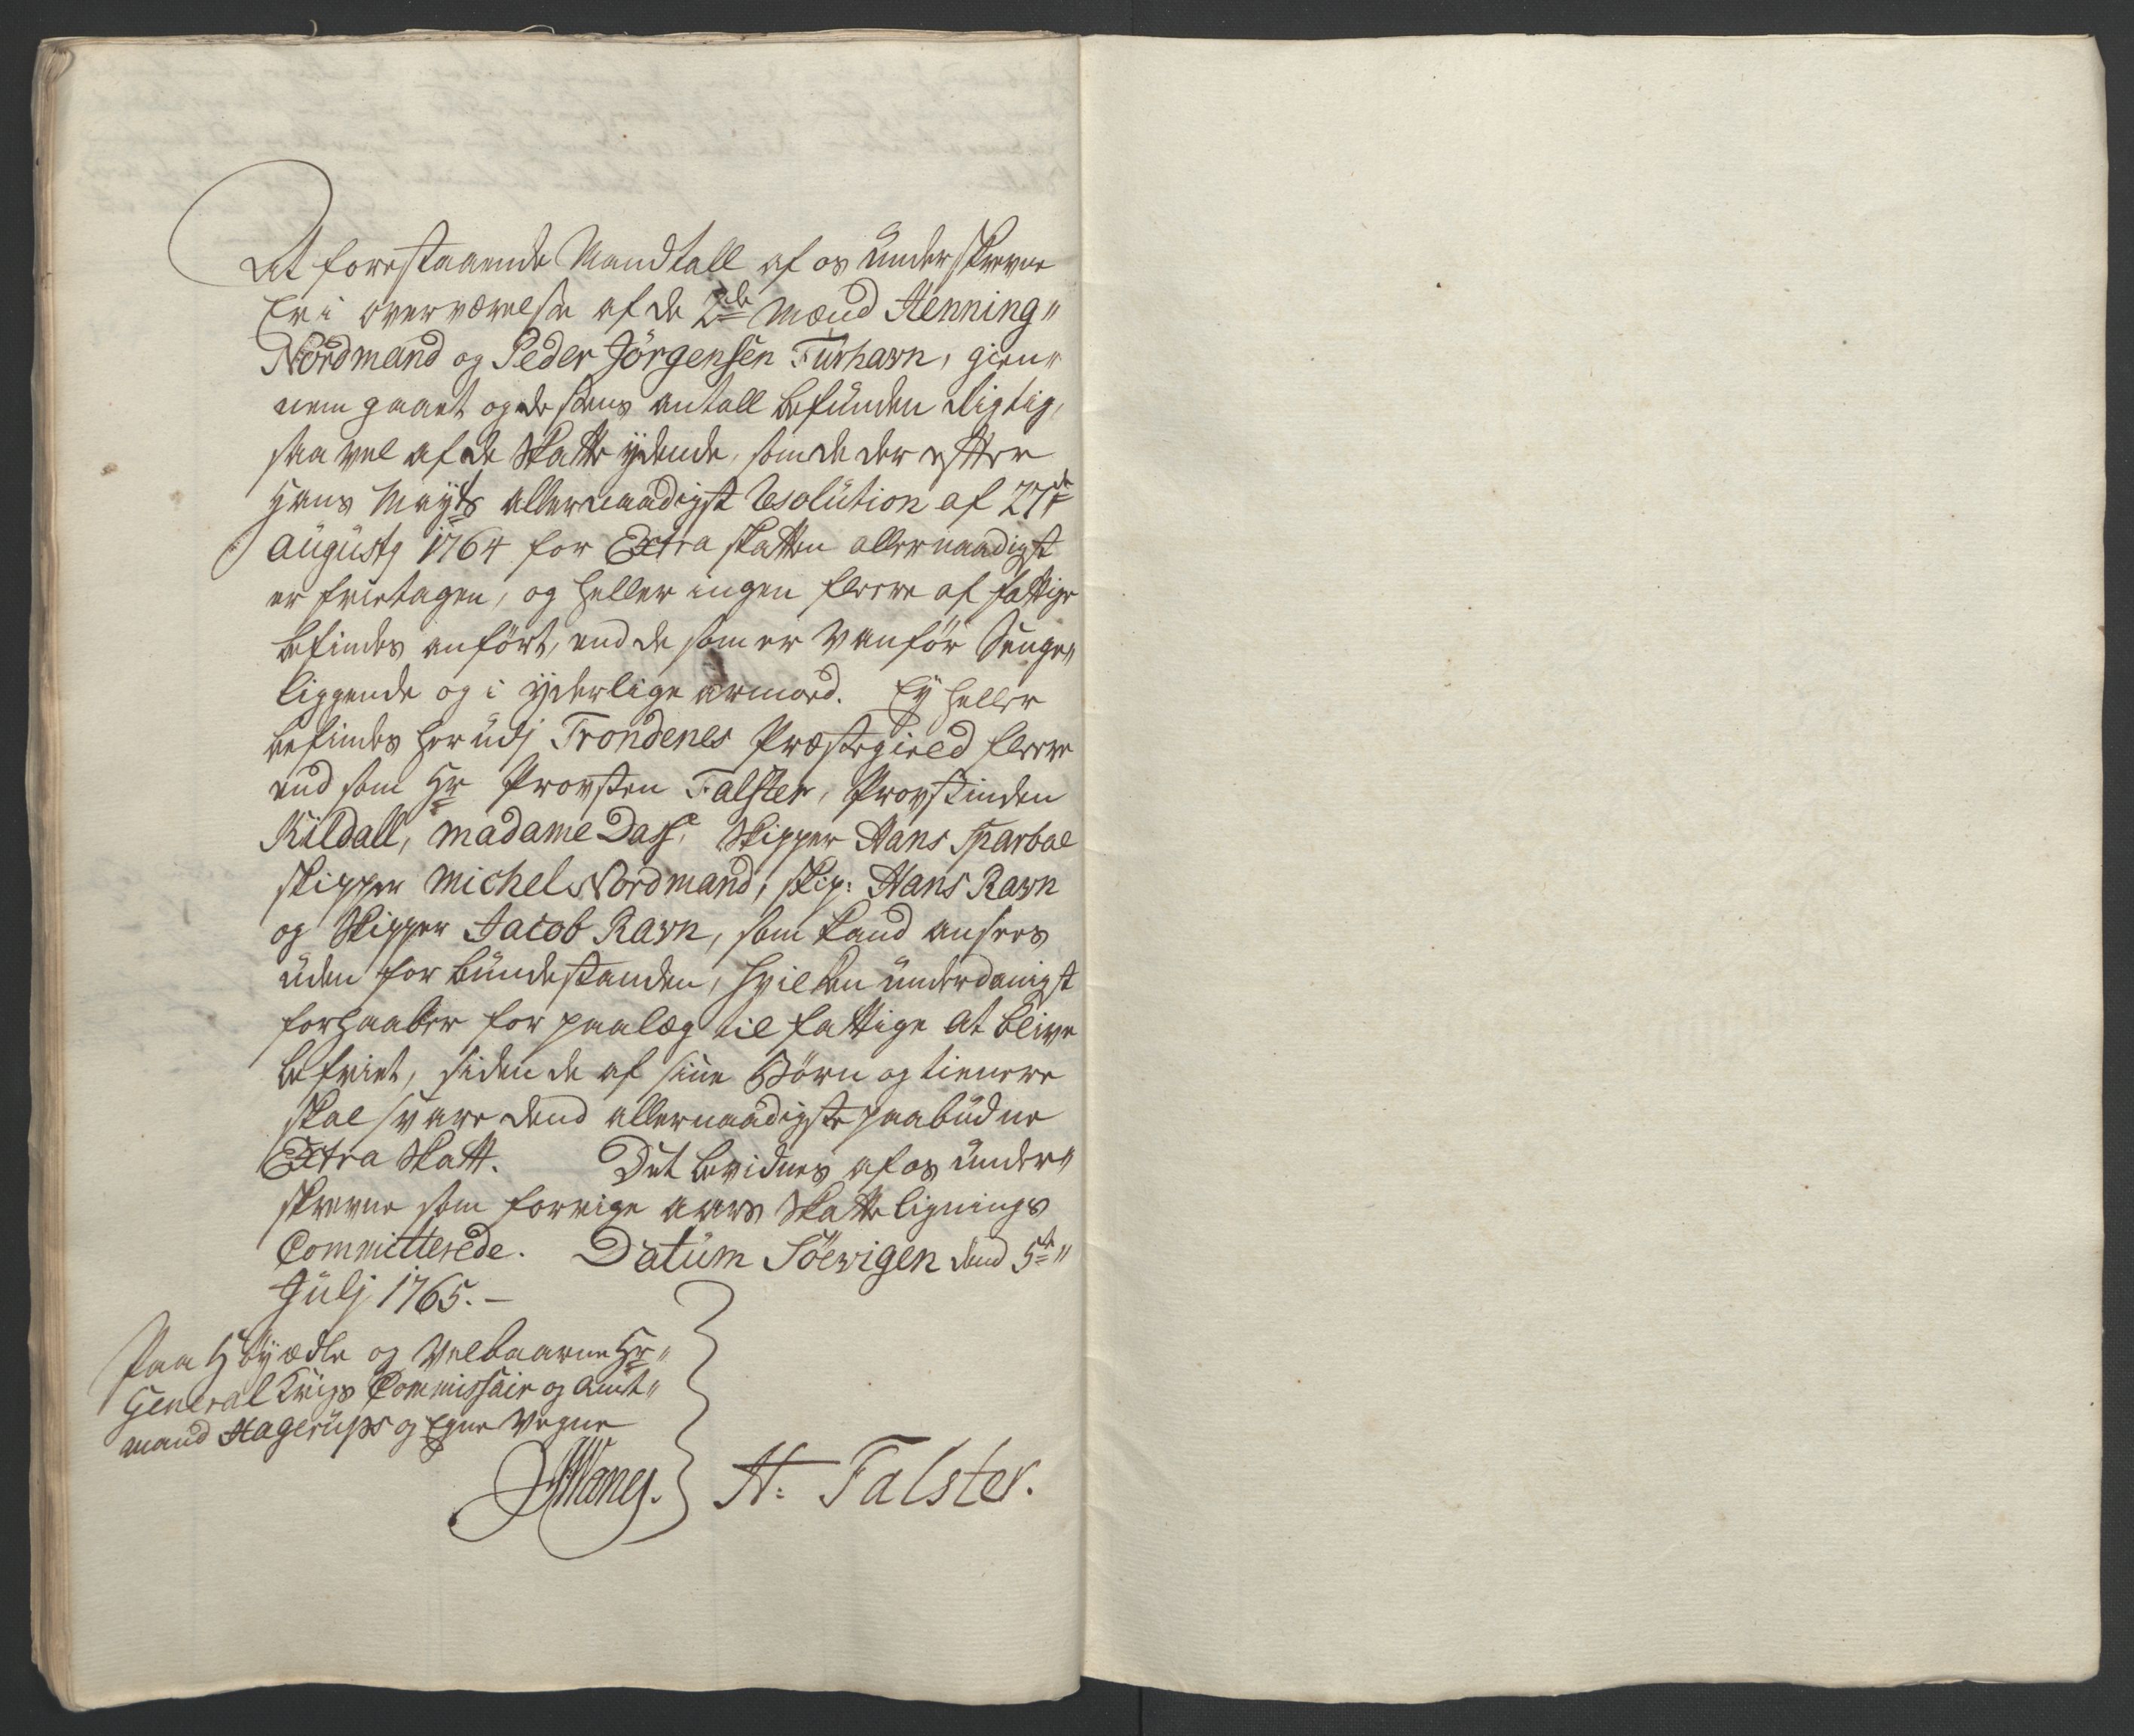 At forestaaende Mandtall af os underskrevne
Er i overværelse af de 2de Mænd Henning„
Nordmand og Peder Jörgensen Furhavn, gien„
nem gaaet og dessens antall befunden Rigtig,
saa vel af de Skatte ydende, som de der efter
Hans Mayts allernaadigst Resolution af 27de
Augustj 1764 for Extra skatten allernaadigst
er frietagen, og heller ingen fleere af fattige
befindes anfört, end de som er Vanför Senge„
liggende og i yderlige armoed. Ey heller
befindes her udj Trondenes Præstegield fleere
end som Hr Provsten Falster, Provstinden
Kildall, Madame Dass, Skipper Hans Sparboe
skipper Michel Nordmand, skip: Hans Ravn
og Skipper Jacob Ravn, som kand ansees
uden for bundestanden, hvilken underdanigst
forhaaber for paalæg til fattige at blive
befriet, siden de af sine Börn og tienere
skal svare dend allernaadigste paabudne
Extra Skatt. Det bevidnes af os under„
skrevne som forrige aars Skatte lignings
Committerede. Datum Söevigen dend 5te„
Julj 1765.–
Paa Höyædle og Velbaarne Hr„
General Krigs Commissair og Amt„
mand Hagerups og Egne Vegne
JWang. H: Falster.